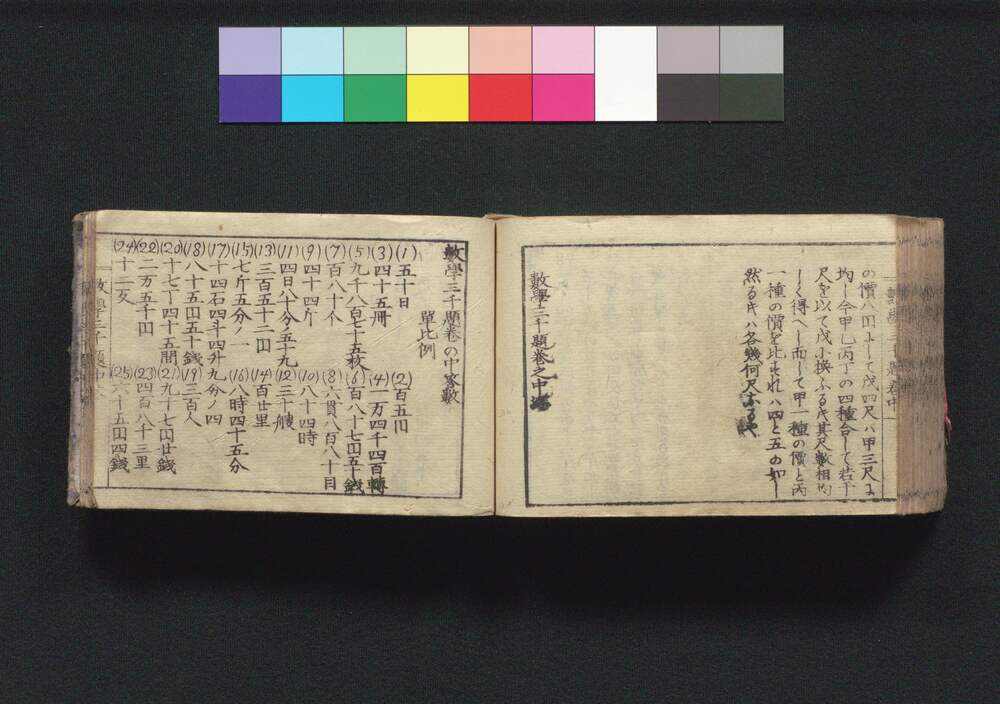 の價八円ゟして戊四尺ハ甲三尺に
均し今甲乙丙丁の四種合して若干
尺を以て戊小換ふるキ其尺數相均
しく得へし而して甲一種の價と丙
一種の價を比すれハ四と五の如し
然るキハ各幾何尺なるや
數學三千題巻之中場
數學三千題巻の中答數
單比例
(1)五十日 (2)百五円
(3)四十五冊 (4)一万四千四百轉
(5)九千八百七十五枚 (6)百八十七円五十錢
(7)百八十个 (8)六貫八百八十目
(9)四十四斤 (10)八十四時
(11)四日八十分ノ五十九 (12)三十艘
(13)三百五十二円 (14)百廿里
(15)七斤五分ノ一 (16)八時四十五分
(17)十四石四斗四升九分ノ四
(18)八十五円五十錢 (19)三百人
(20)十七丁四十五間 (21)九十七円廿錢
(22)二万五千円 (23)四百八十三里
(24)十二支 (25)六十五円四錢